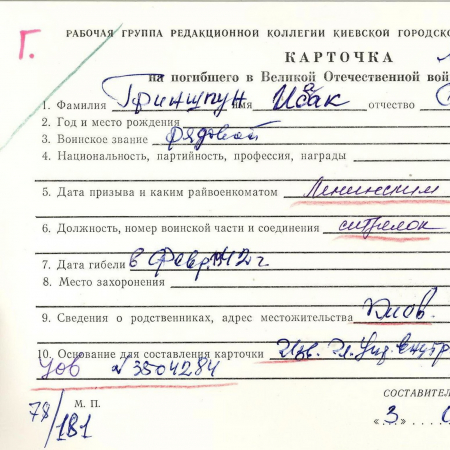 Г.
РАБОЧАЯ ГРУППА РЕДАКЦИОННОЙ КОЛЛЕГИИ КИЕВСКОЙ ГОРОДСКО
КАРТОЧКА
на погибшего в Великой Отечественной вой
1. Фамилия Гриншпун имя Исак отчество
2. Год и место рождения
3. Воинское звание рядовой
4. Национальность, партийность, профессия, награды
5. Дата призыва и каким райвоенкоматом Ленинским
6. Должность, номер воинской части и соединения стрелок
7. Дата гибели в февр. 42 г.
8. Место захоронения
9. Сведения о родственниках, адрес местожительства Киев.
10. Основание для составления карточки Изв. Гл. Упр.
№ 3504284
78/181
М. П.
СОСТАВИТЕЛ
«3